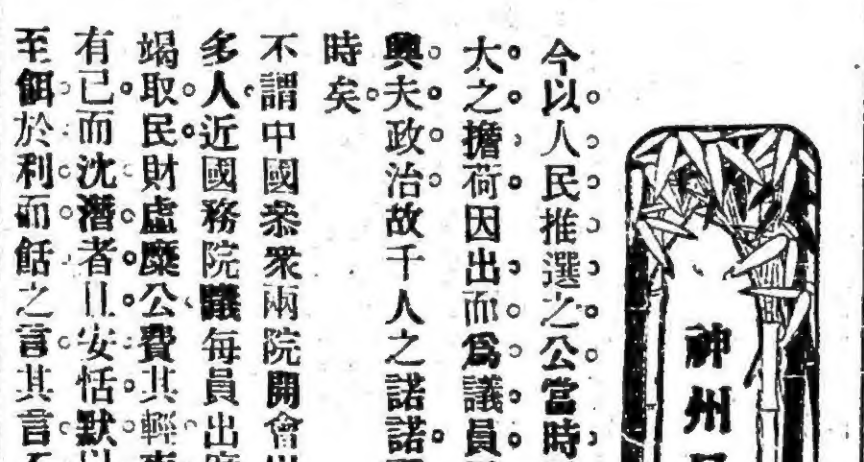 神州
今以人民推選之公當時
大之擔荷因出而爲議員
興夫政治故千人之諾諾
時矣
不謂中國叅衆兩院開會
多人近國務院議每員出席
竭取民財虛糜公費其輕
有已而沈潛者且安恬默以
至餌於利而餂之言其言不